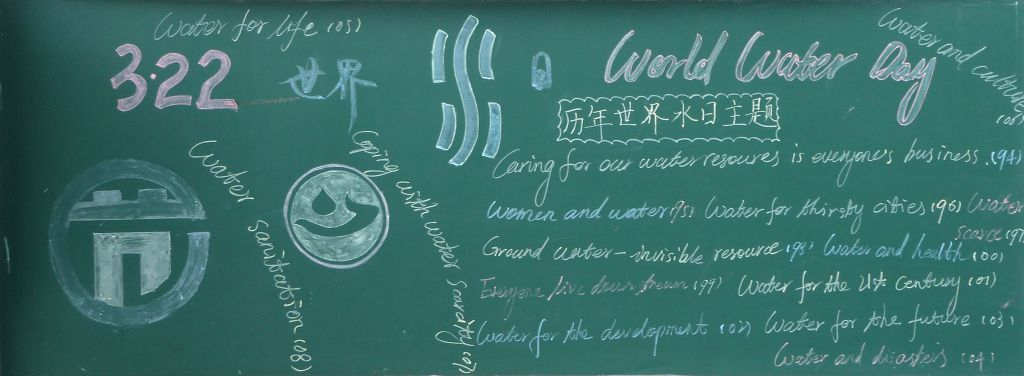 Water for life (05)
3.22 世界
World Water Day
Water and culture (06)
历年世界水日主题
Caring for our water resoures is everyone's business. (94)
Women and water (95) Water for thirsty cities (96) Water scarce (97)
Ground water - invisible resource (98) Water and health (00)
Everyone live down stream (99) Water for the 21st Century (01)
Water for the development (02) Water for the future (03)
Water and disasters (04)
Water sanitation (08)
Coping with water scarcity (07)